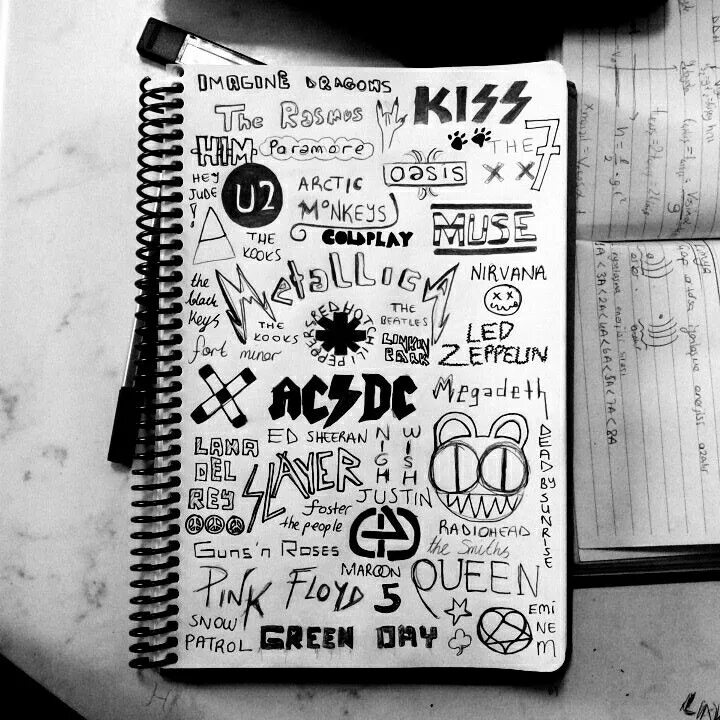 IMAGINE DRAGONS
The Rasmus
KISS
HIM
Paramore
THE 7
oasis
X X
HEY
JUDE
!
U2
ARCTIC
MONKEYS
MUSE
THE
KOOKS
COLDPLAY
Metallica
NIRVANA
the
black
keys
THE
KOOKS
RED HOT CHILI PEPPERS
THE
BEATLES
LINKIN
PARK
LED
ZEPPELIN
fort minor
X
AC DC
Megadeth
ED SHEERAN
NIGH
WISH
LANA
DEL
REY
SLAYER
JUSTIN
DEAD BY SUNRISE
foster
the people
RADIOHEAD
the Smiths
Guns'n Roses
MAROON
5
QUEEN
PINK FLOYD
SNOW
PATROL
GREEN DAY
EMI
NE
M